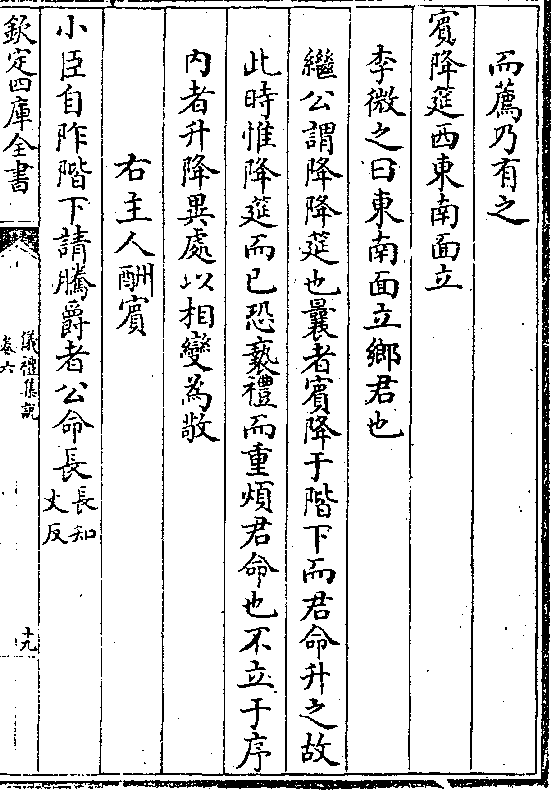 而薦乃有之
賔降筵西東南面立
李微之曰東南面立鄉君也
繼公謂降降筵也曩者賔降于階下而君命升之故
此時惟降筵而已恐褻禮而重煩君命也不立于序
内者升降異處以相變為敬
右主人酬賔
小臣自阼階下請媵爵者公命長長知丈反
欽定四庫全書
儀禮集説
卷六
十九